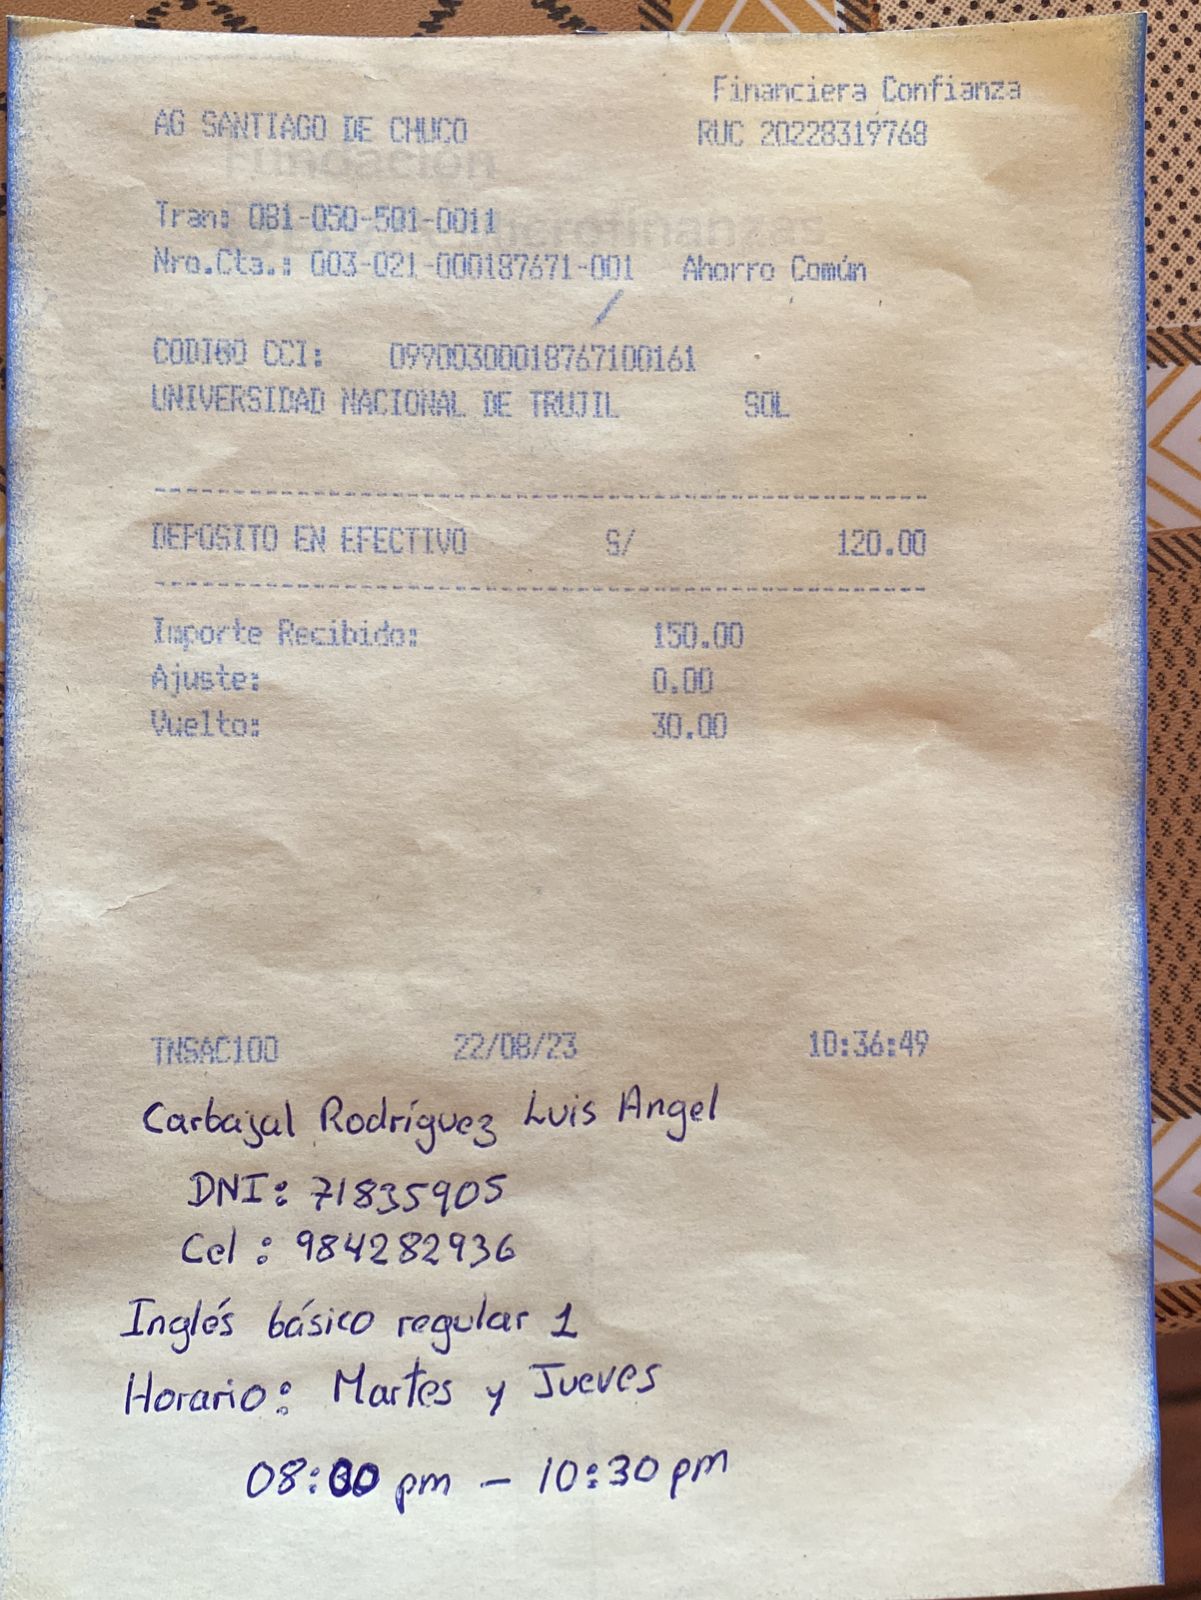 Financiera Confianza
AG SANTIAGO DE CHUCO RUC 20228319768
Fundación
Tran: 081-050-501-0011
Microfinanzas
Nro.Cta.: 003-021-000187671-001 Ahorro Común
CODIGO CCI: 09900300018767100161
UNIVERSIDAD NACIONAL DE TRUJIL SOL
DEPOSITO EN EFECTIVO S/ 120.00
Importe Recibido: 150.00
Ajuste: 0.00
Vuelto: 30.00
TNSAC100 22/08/23 10:36:49
Carbajal Rodríguez Luis Angel
DNI: 71835905
Cel : 984282936
Inglés básico regular 1
Horario: Martes y Jueves
08:00 pm - 10:30 pm